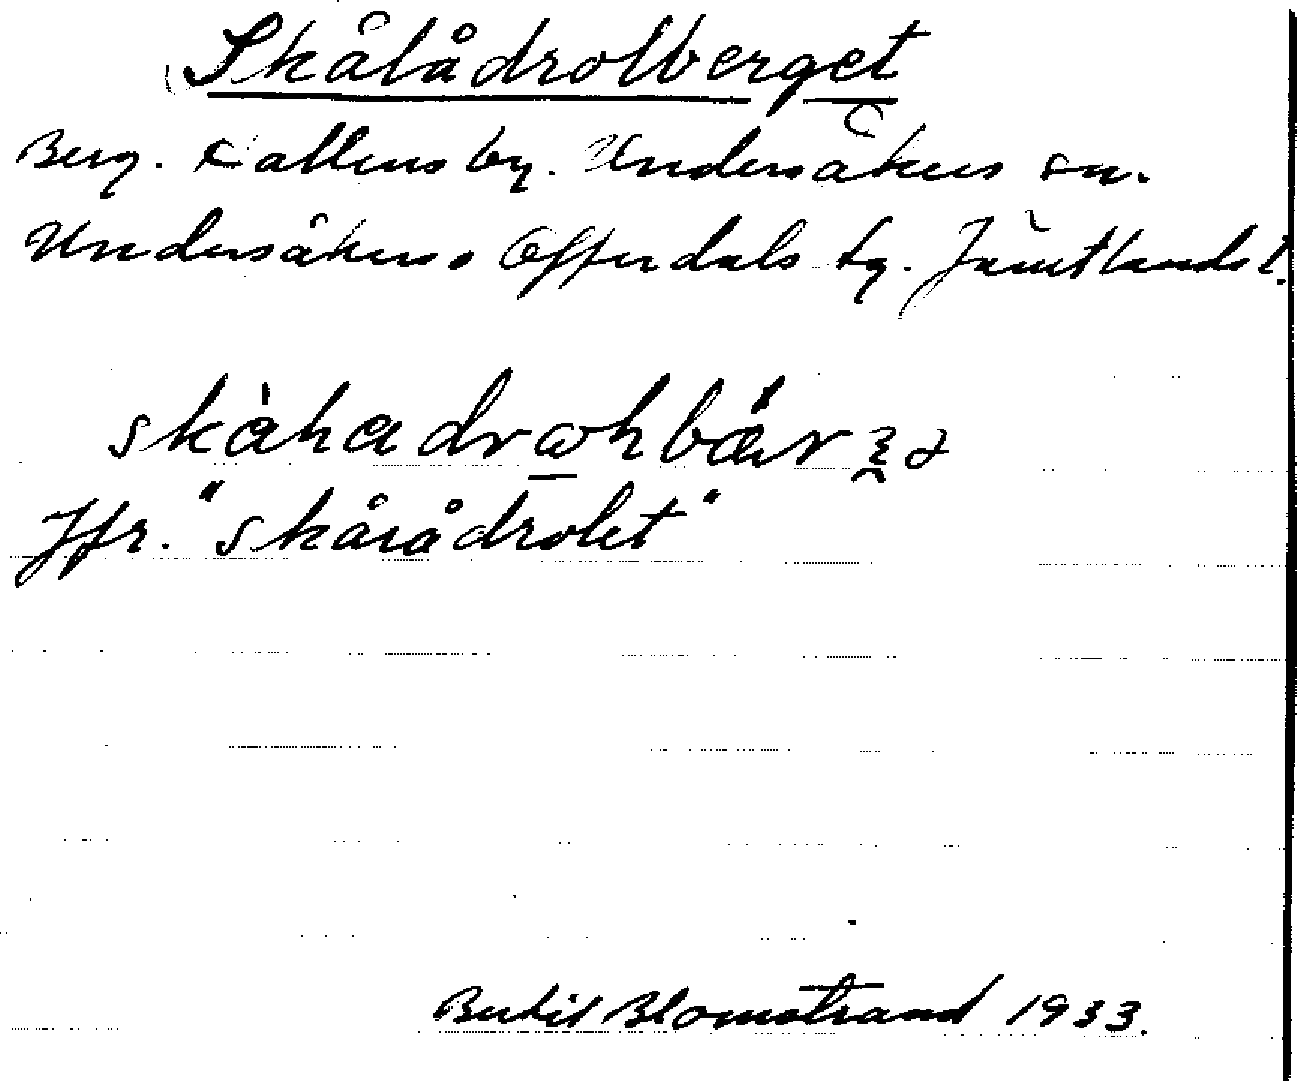 Skålådrolberget
Berg. Vallens by. Undersåkers sn.
Undersåkers o Offerdals tg. Jämtlands l.
skàhadrωhbä́rʒə
Jfr. "skårådrolet"
Bertil Blomstrand 1933.